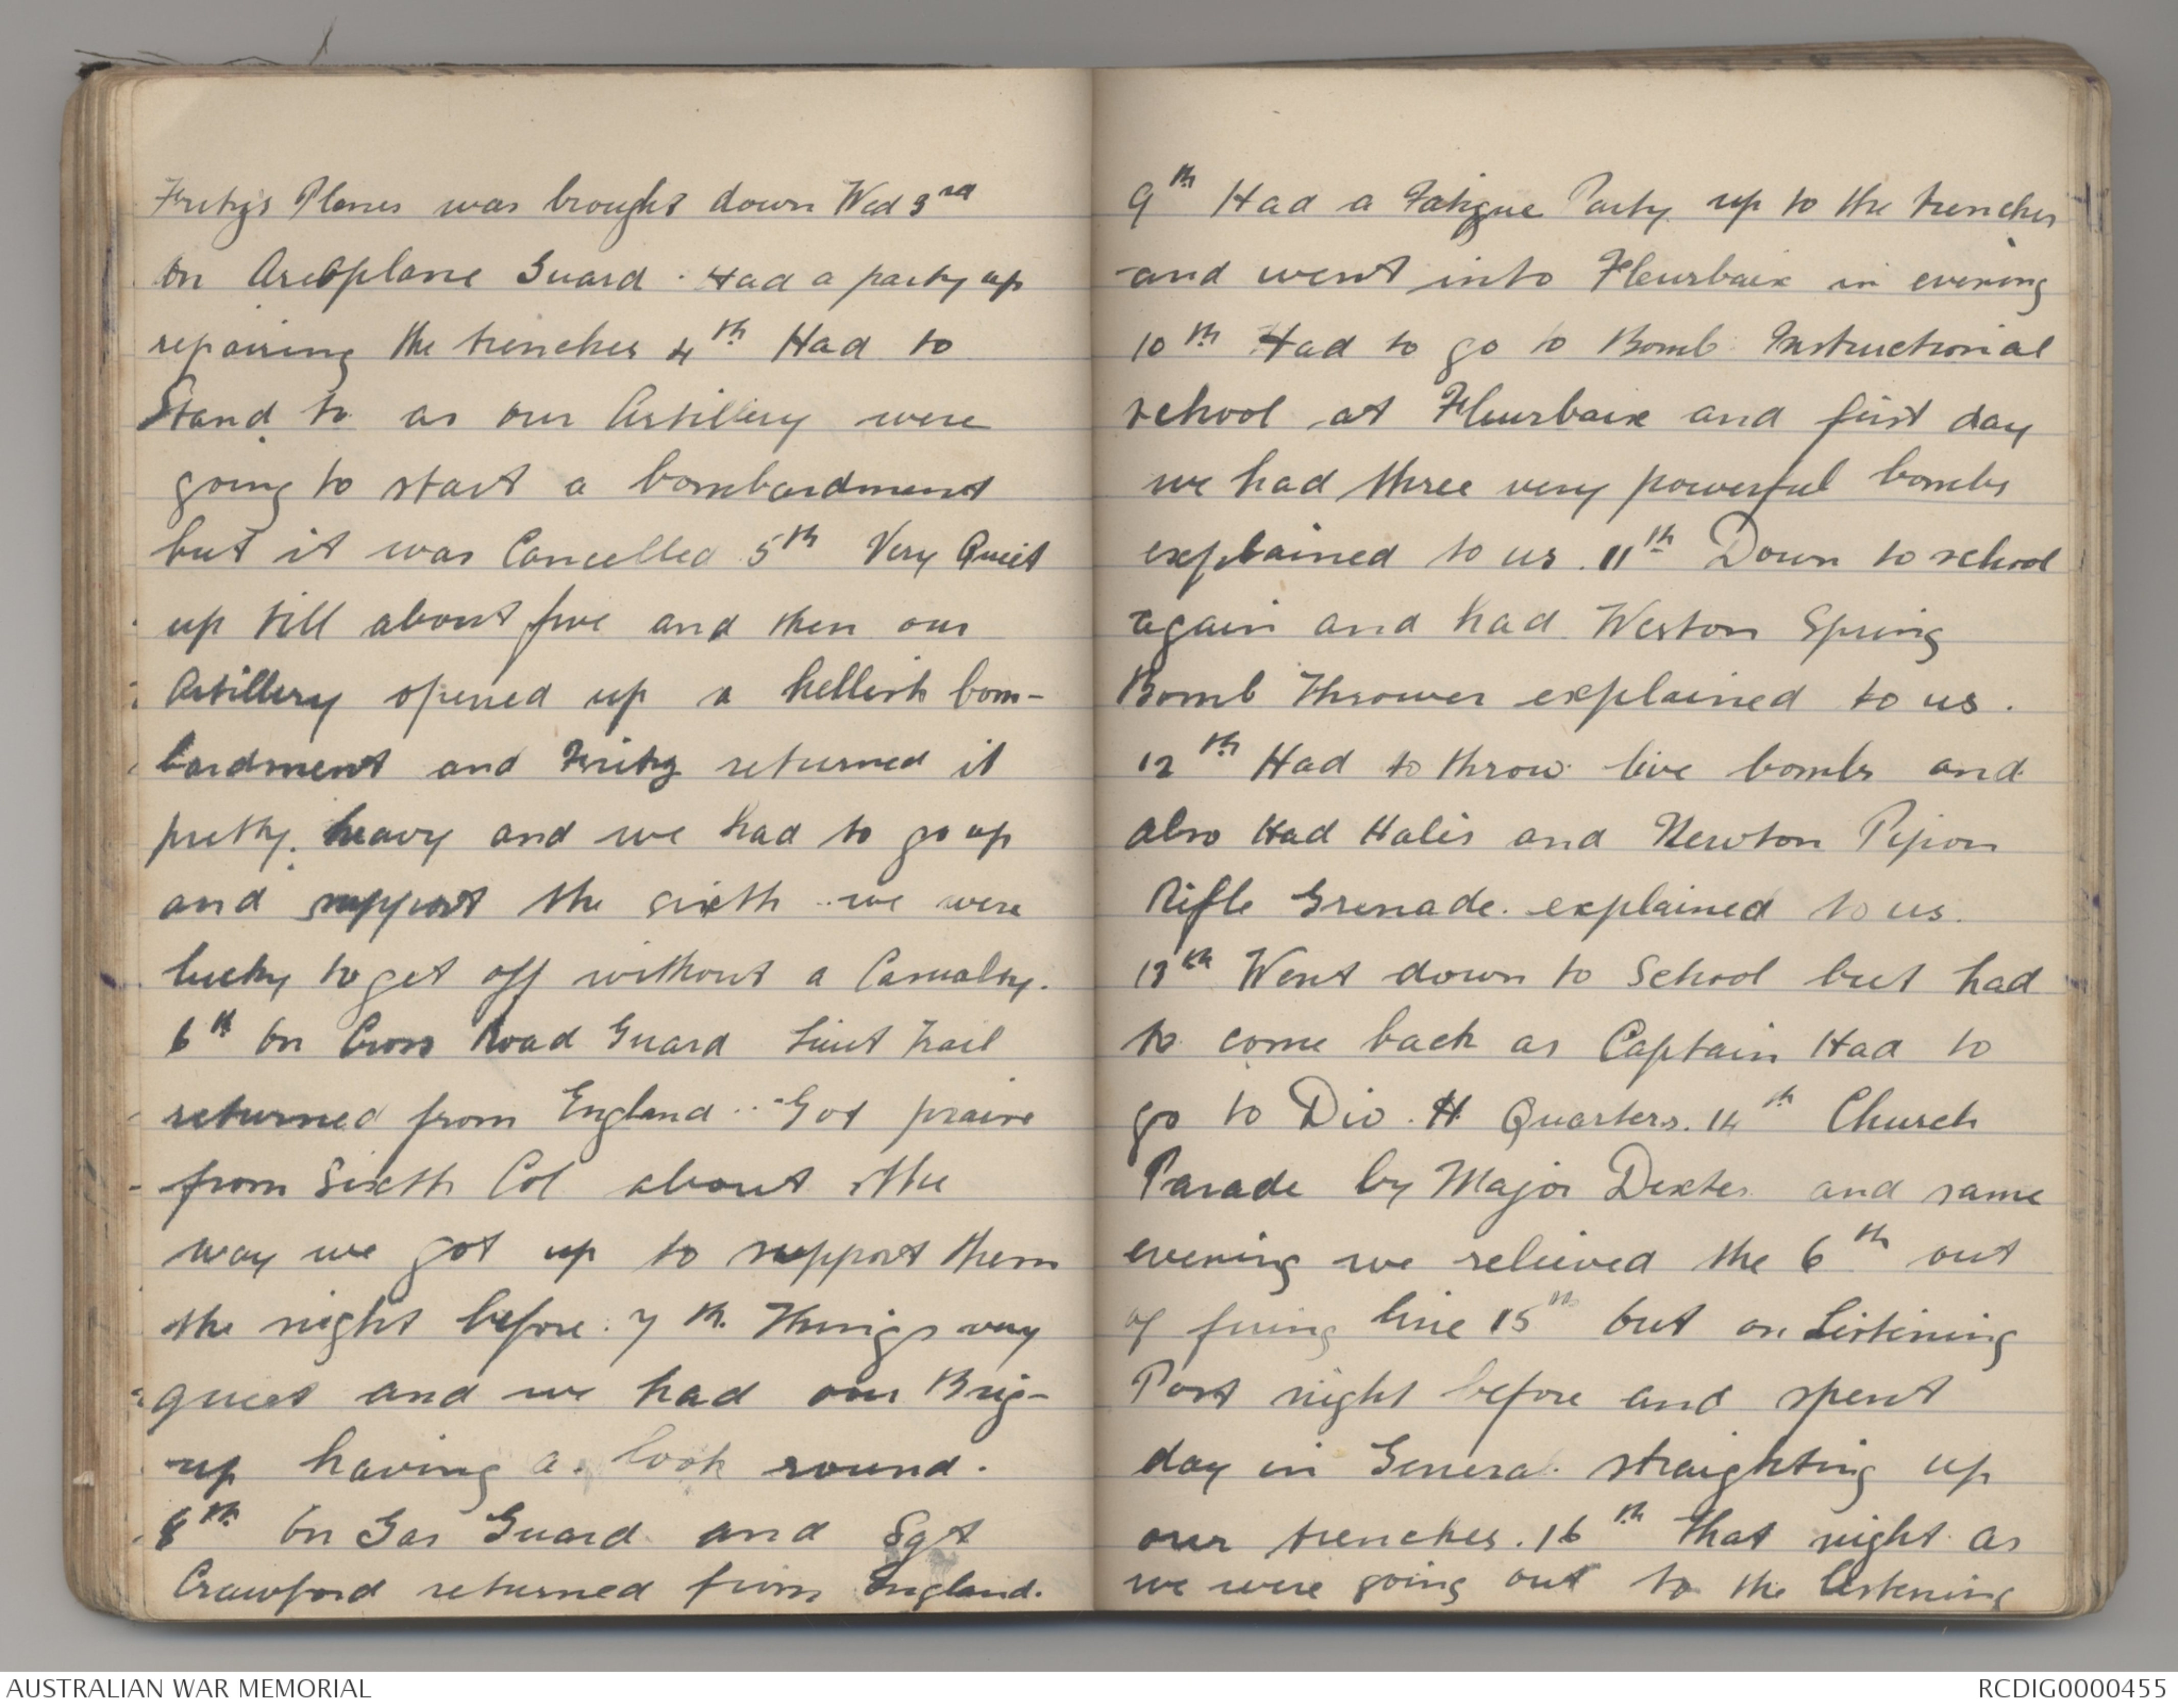 Fritz's Planes was brought down Wed 3rd
On Areoplane Guard. Had a party up
repairing the trenches 4th Had to
Stand to as our Artillery were
going to start a bombardment
but it was Cancelled 5th Very Quiet
up till about five and then our
Artillery opened up a hellish bom-
bardment and Fritz returned it
pretty heavy and we had to go up
and support the sixth we were
lucky to get off without a Casualty.
6th On Cross Road Guard Lieut
returned from England. Got praise
from Sixth Col about the
way we got up to support them
the night before. 7th. Things very
quiet and we had our Brig-
up having a look round.
8th On Gas Guard and Sgt
Crawford returned from England.
9th Had a Fatigue Party up to the trenches
and went into Fleurbaix in evening
10th Had to go to Bomb Instructional
school at Fleurbaix and first day
we had three very powerful bombs
explained to us. 11th Down to school
again and had Weston Spring
Bomb Thrower explained to us.
12th Had to throw live bombs and
also Had Hales and Newton Pipon
Rifle Grenade. explained to us.
13th Went down to School but had
to come back as Captain Had to
go to Div. H. Quarters. 14th Church
Parade by Major Dexter and same
evening we relieved the 6th out
of firing line 15th out on Listening
Post night before and spent
day in General straighting up
our trenches. 16th That night as
we were going out to the listening
AUSTRALIAN WAR MEMORIAL
RCDIG0000455